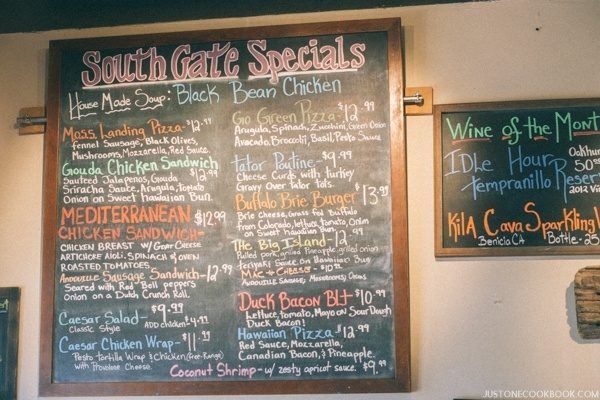 South Gate Specials
House Made Soup: Black Bean Chicken
Moss Landing Pizza - $12.99
Fennel Sausage, Black Olives,
Mushrooms, Mozzarella, Red Sauce.
Gouda Chicken Sandwich
$12.99
Sauteed Jalapenos, Gouda
Sriracha Sauce, Arugula, tomato
Onion on Sweet Hawaiian Bun.
MEDITERRANEAN $12.99
CHICKEN SANDWICH-
CHICKEN BREAST w/ GOAT CHEESE
ARTICHOKE AIOLI, SPINACH & OVEN
ROASTED TOMATOES
ANDOUILLE Sausage Sandwich - 12.99
Seared with Red Bell peppers
Onion on a Dutch Crunch Roll.
Caesar Salad - $9.99
Classic Style ADD chicken $4.99
Caesar Chicken Wrap - $11.99
Pesto Tortilla Wrap & Chicken (Free-Range)
with Provolone Cheese.
Go Green Pizza - $12.99
Arugula, Spinach, Zucchini, Green Onion
Avocado, Broccoli, Basil, Pesto Sauce
tator Poutine - $9.99
Cheese Curds with turkey
Gravy Over tator tots.
Buffalo Brie Burger $13.99
Brie Cheese, Grass fed Buffalo
From Colorado, lettuce, tomato, Onion
on Sweet Hawaiian Bun.
The Big Island - 12.99
Pulled pork, grilled Pineapple, grilled onion
teriyaki Sauce on Hawaiian Bun
MAC + CHEESE - $10.99
ANDOUILLE SAUSAGE, MUSHROOMS, ONIONS
Duck Bacon BLT $10.99
Lettuce, tomato, Mayo on Sour Dough
Duck Bacon!
Hawaiian Pizza - $12.99
Red Sauce, Mozzarella,
Canadian Bacon, & Pineapple.
Coconut Shrimp - w/ zesty apricot sauce. $9.99
Wine of the Mont
Idle Hour Oakhur
Tempranillo Reser
2012 Vi
Kila Cava Sparkling
Benicia CA Bottle - 25
JUSTONECOOKBOOK.COM